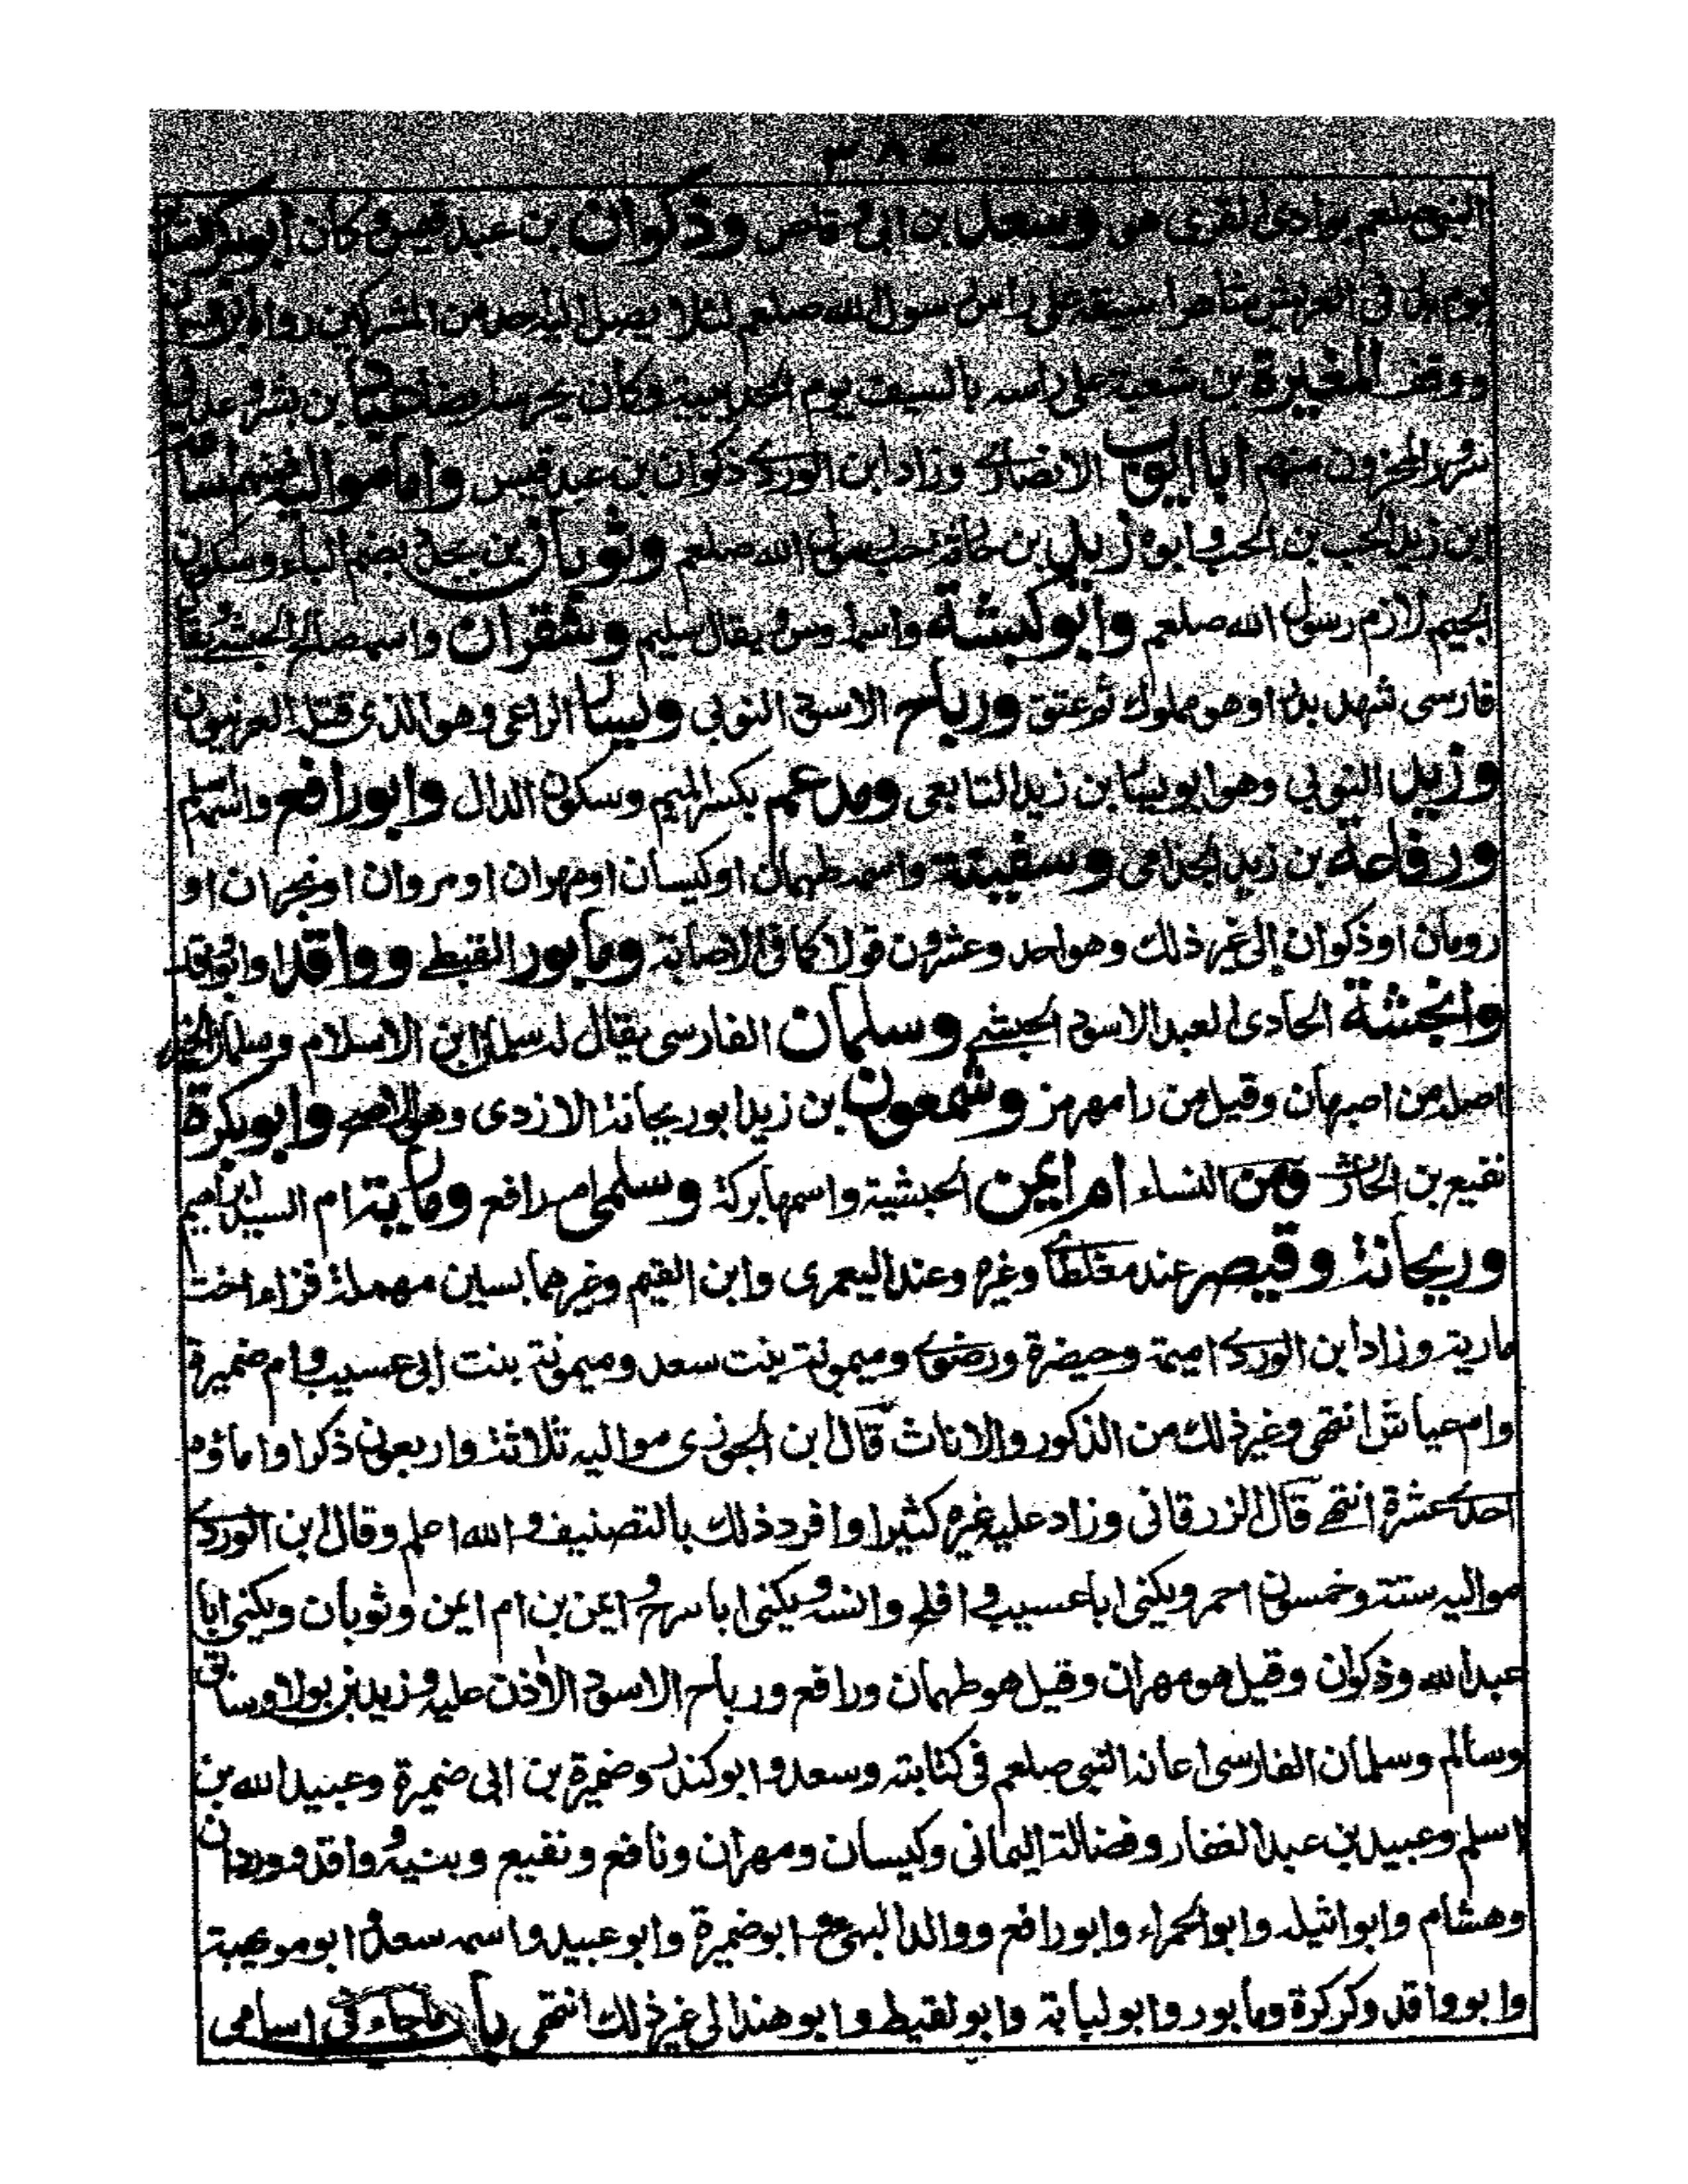 ٣٨٤
النبي صلعم بوادي القرى هو وسعد بن ابي وقاص وذكوان بن عبد قيس وكان ابو بكر الصديق
يوم بدر في العريش شاهرا سيفه على راس رسول الله صلعم لئلا يصل اليه احد من المشركين رواه
ووقف المغيرة بن شعبة على راسه بالسيف يوم الحديبية وكان يحرسه ايضا عباد بن بشر
منهم ابا ايوب الانصاري وزاد ابن الوردي ذكوان بن عبد قيس واما مواليه فمنهم اسامة
ابن زيد الحب بن الحب وابوه زيد بن حارثة حب رسول الله صلعم وثوبان بن بجدد بضم الباء وسكون
الجيم لازم رسول الله صلعم وابو كبشة واسمه اوس يقال سليم وشقران واسمه صالح الحبشي يقال
فارسي شهد بدرا وهو مملوك ثم عتق ورباح الاسود النوبي ويسار الراعي وهو الذي قتله العرنيون
وزيد النوبي وهو ابو يسار بن زيد التابعي ومدعم بكسر الميم وسكون الدال وابو رافع واسمه اسلم
ورفاعة بن زيد الجذامي وسفينة واسمه طهمان او كيسان او مهران او مروان او نجران او
رومان او ذكوان الى غير ذلك وهو احد وعشرون قولا كما في الاصابة ومابور القبطي وواقد او ابو واقد
وانجشة الحادي العبد الاسود الحبشي وسلمان الفارسي يقال له سلمان ابن الاسلام وسلمان الخير
اصله من اصبهان وقيل من رامهرمز وشمعون بن زيد ابو ريحانة الازدي وهو الاصح وابو بكرة
نفيع بن الحارث ومن النساء ام ايمن الحبشية واسمها بركة وسلمى ام رافع ومارية ام السيد ابراهيم
وريحانة وقيصر عند مغلطاي وغيره وعند اليعمري وابن القيم وغيرهما بسين مهملة فراء اخت
مارية وزاد ابن الوردي اميمة وحيضرة ورضوى وميمونة بنت سعد وميمونة بنت ابي عسيب وام ضميرة
وام عياش انتهى وغير ذلك من الذكور والاناث قال بن الجوزي مواليه ثلاثة واربعون ذكرا واماؤه
احدى عشرة انتهى قال الزرقاني وزاد عليه غيره كثيرا وافرد ذلك بالتصنيف والله اعلم وقال بن الوردي
مواليه ستة وخمسون احمر ويكنى ابا عسيب وافلح وانسة ويكنى ابا سرح وايمن بن ام ايمن وثوبان ويكنى ابا
عبد الله وذكوان وقيل هو مهران وقيل هو طهمان ورافع ورباح الاسود الاذن عليه وزيد بن بولا وسابق
وسالم وسلمان الفارسي اعانه النبي صلعم في كتابته وسعد وابو كندير وضميرة بن ابي ضميرة وعبيد الله بن
اسلم وعبيد بن عبد الغفار وفضالة اليماني وكيسان ومهران ونافع ونفيع وبنيه وواقد ووردان
وهشام وابو اثيلة وابو الحمراء وابو رافع ووالد البهي ابو ضميرة وابو عبيد واسمه سعد ابو مويهبة
وابو واقد وكركرة ومابور وابو لبابة وابو لقيط وابو هند الى غير ذلك انتهى باب ماجاء في اسامي